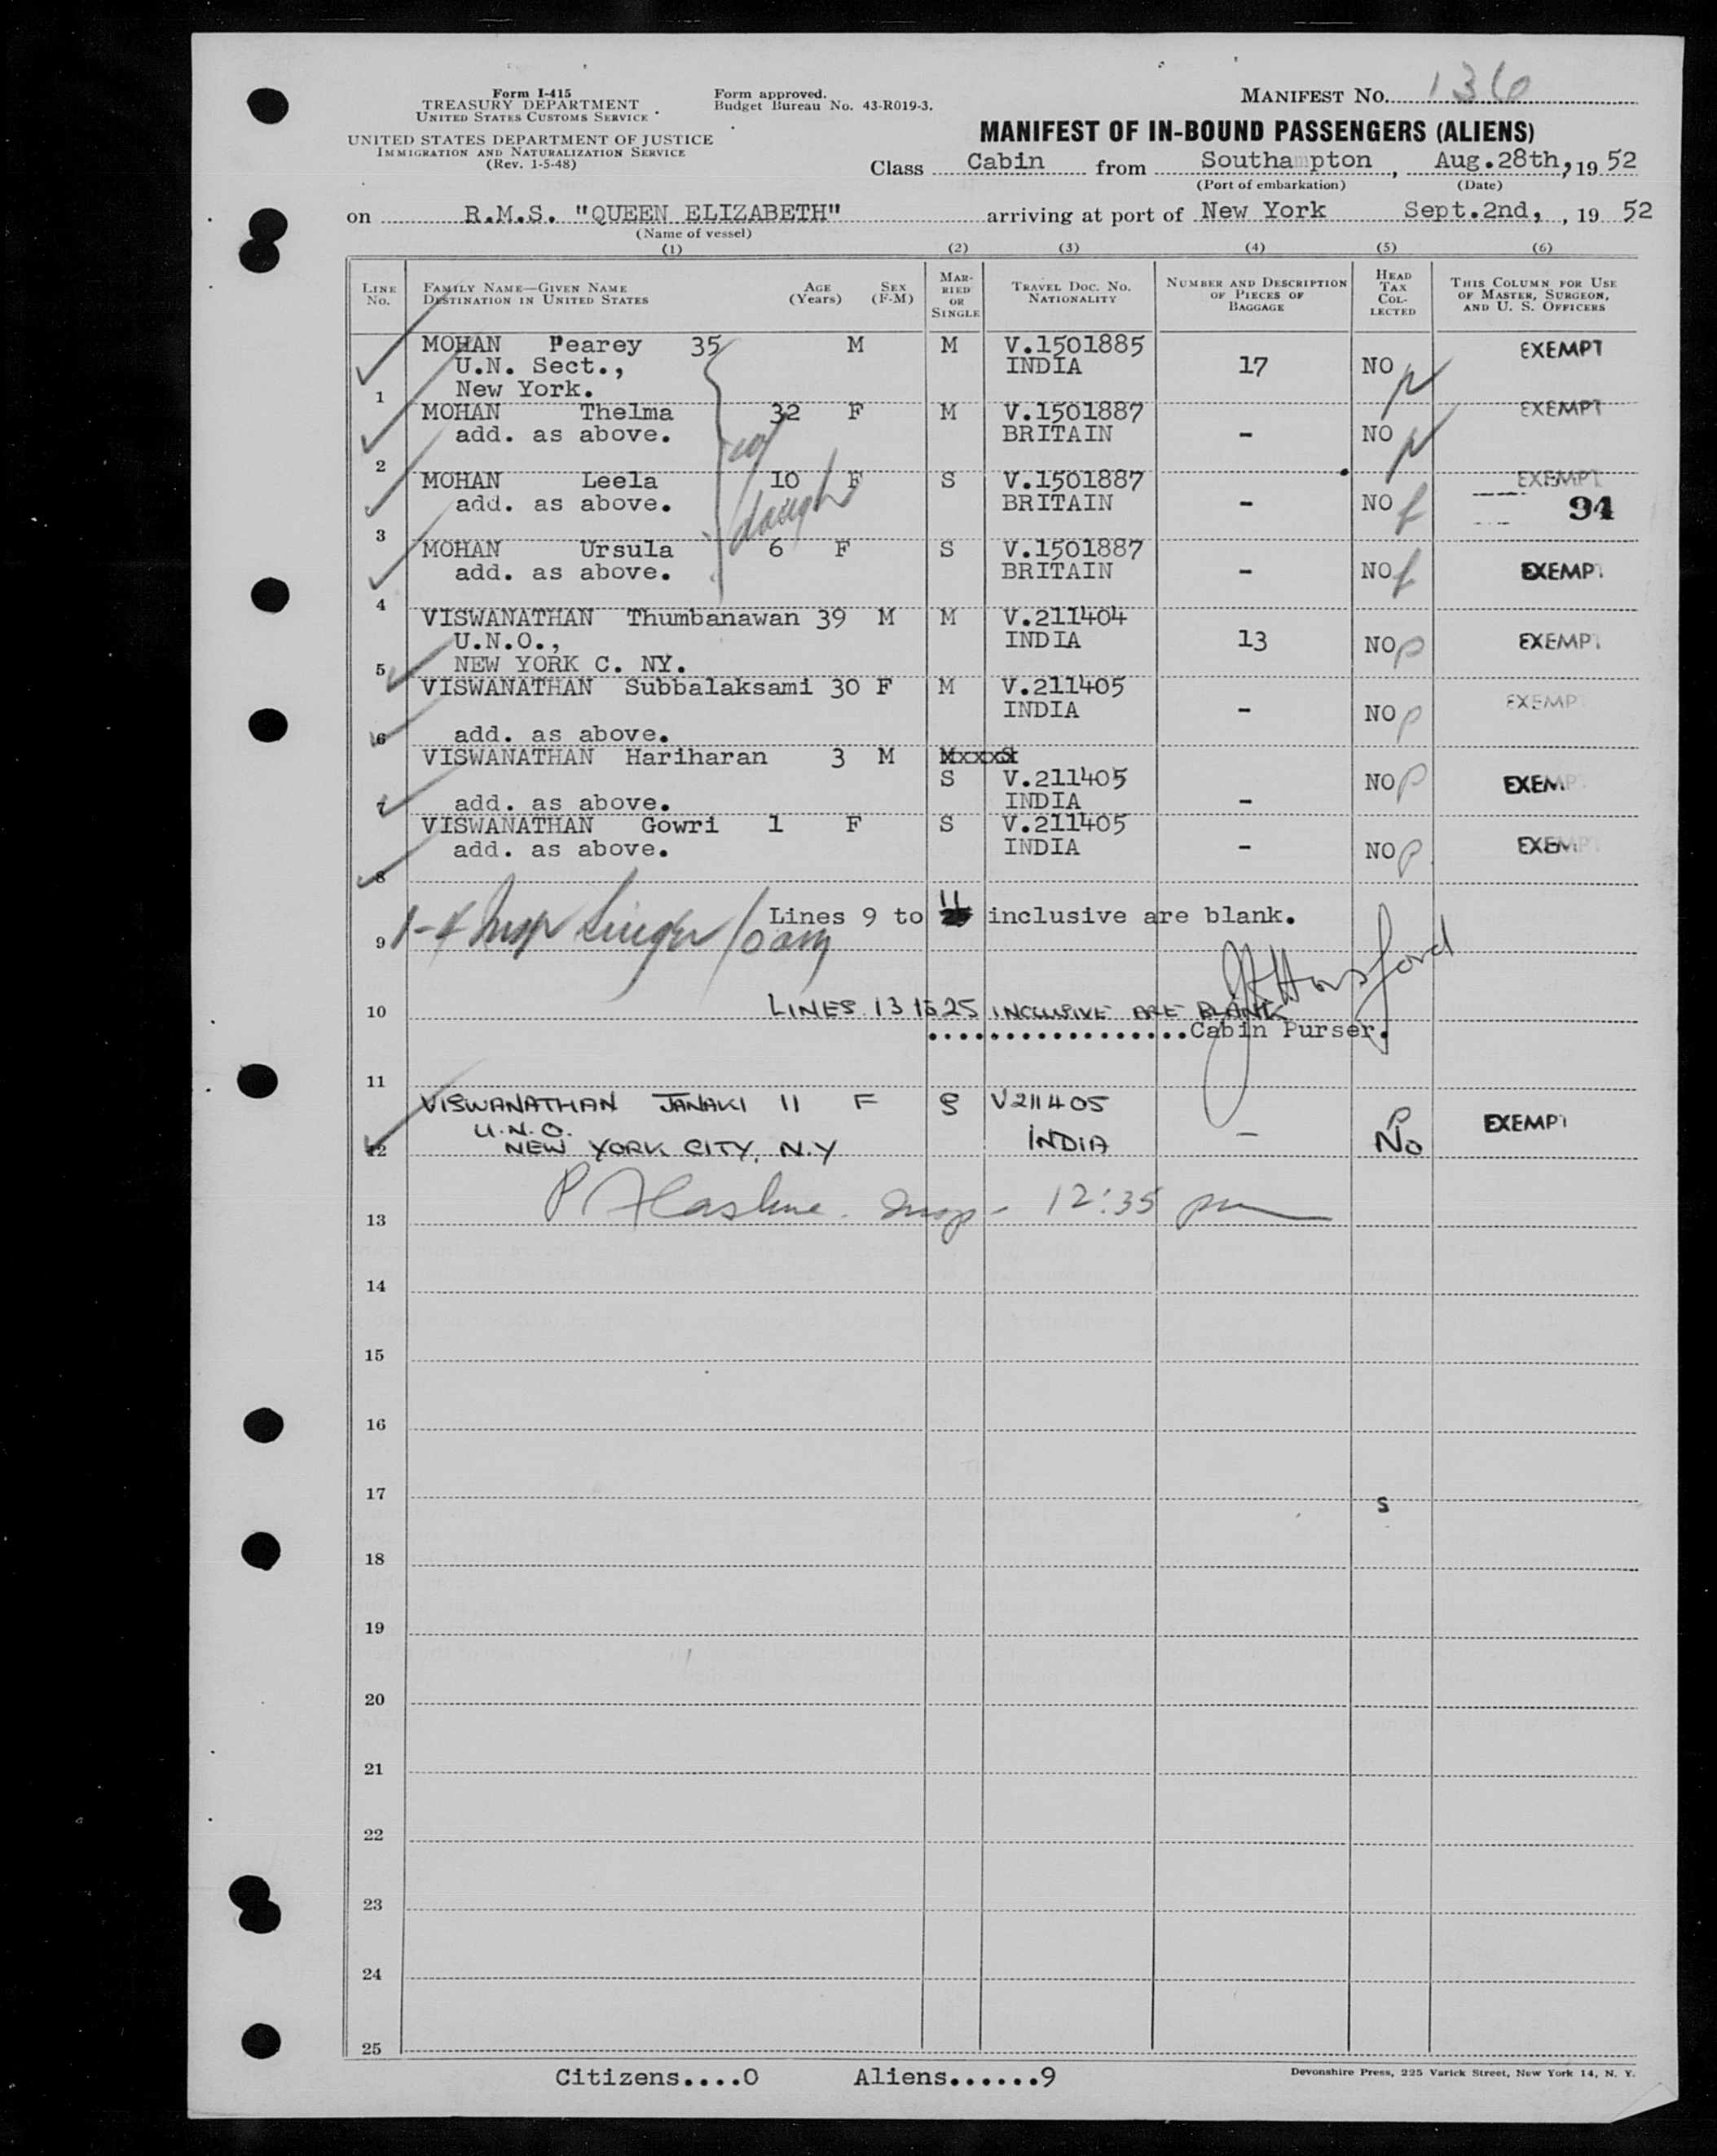 Form I-415
TREASURY DEPARTMENT
UNITED STATES CUSTOMS SERVICE
UNITED STATES DEPARTMENT OF JUSTICE
IMMIGRATION AND NATURALIZATION SERVICE
(Rev. 1-5-48)
Form approved.
Budget Bureau No. 43-R019-3.
MANIFEST NO. 136
MANIFEST OF IN-BOUND PASSENGERS (ALIENS)
Class Cabin from Southampton, Aug.28th, 19 52
(Port of embarkation) (Date)
on R.M.S. "QUEEN ELIZABETH" arriving at port of New York Sept.2nd, , 19 52
(Name of vessel)
(1) (2) (3) (4) (5) (6)
LINE NO.
FAMILY NAME—GIVEN NAME AGE SEX
DESTINATION IN UNITED STATES (Years) (F-M)
MARRIED OR SINGLE
TRAVEL DOC. NO. NATIONALITY
NUMBER AND DESCRIPTION OF PIECES OF BAGGAGE
HEAD TAX COLLECTED
THIS COLUMN FOR USE OF MASTER, SURGEON, AND U. S. OFFICERS
MOHAN Pearey 35 M M V.1501885 EXEMPT
U.N. Sect., INDIA 17 NO
1 New York.
MOHAN Thelma 32 F M V.1501887 EXEMPT
add. as above. BRITAIN - NO
2
MOHAN Leela 10 F S V.1501887 EXEMPT
add. as above. BRITAIN - NO 94
daugh
3
MOHAN Ursula 6 F S V.1501887
add. as above. BRITAIN - NO EXEMP
4
VISWANATHAN Thumbanawan 39 M M V.211404
U.N.O., INDIA 13 NO EXEMP
5 NEW YORK C. NY.
VISWANATHAN Subbalaksami 30 F M V.211405
INDIA - NO EXEMP
6 add. as above.
VISWANATHAN Hariharan 3 M MxxxSt
S V.211405 NO EXEM
7 add. as above. INDIA -
VISWANATHAN Gowri 1 F S V.211405
add. as above. INDIA - NO EXEM
8
Lines 9 to 11 inclusive are blank.
9 1-4 Insp Singer 10 am
J Hornsford
10 LINES 13 to 25 INCLUSIVE ARE BLANK
................Cabin Purser.
11
VISWANATHAN JANAKI 11 F S V211405 P EXEMPT
U.N.O. INDIA - No
12 NEW YORK CITY, N.Y
Insp - 12:35 pm
13
14
15
16
17
S
18
19
20
21
22
23
24
25
Citizens....0 Aliens......9
Devonshire Press, 225 Varick Street, New York 14, N. Y.